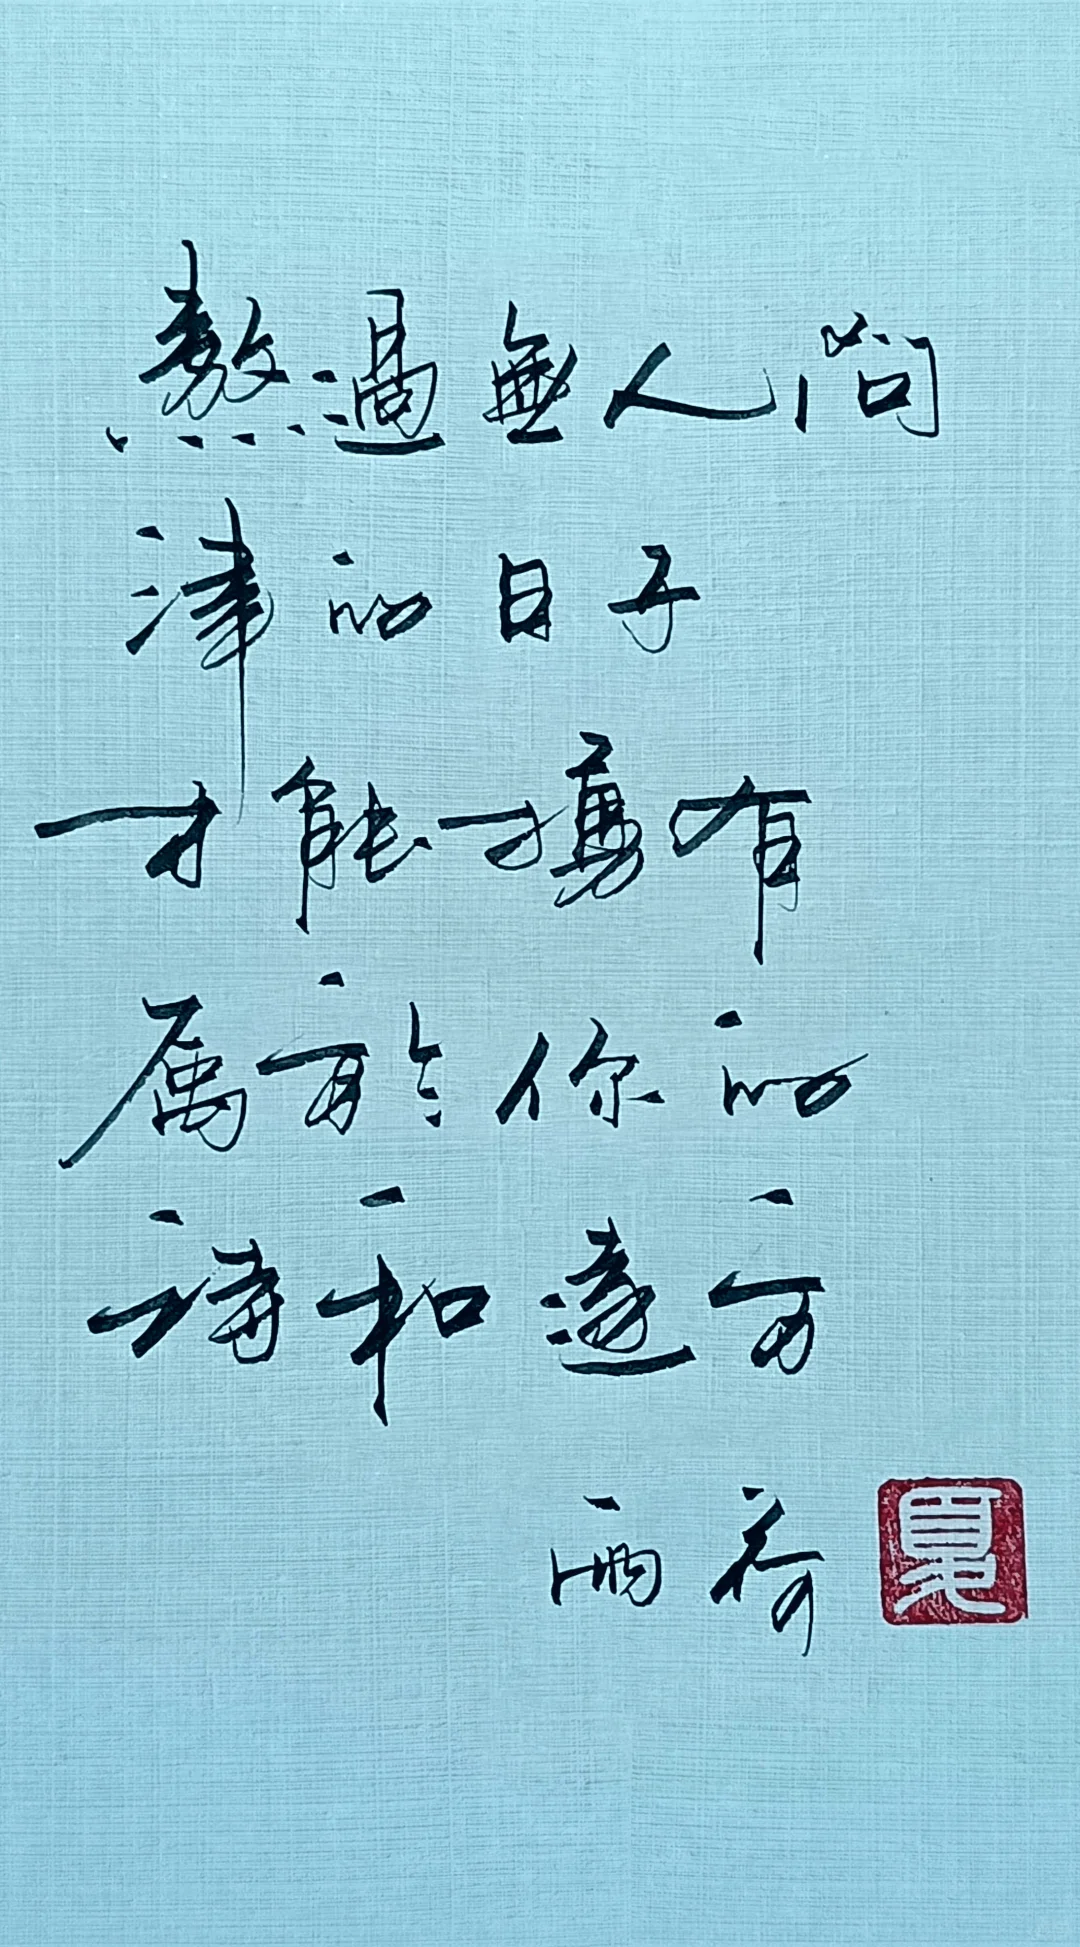 熬過無人问
津的日子
才能擁有
属於你的
詩和遠方
雨荷